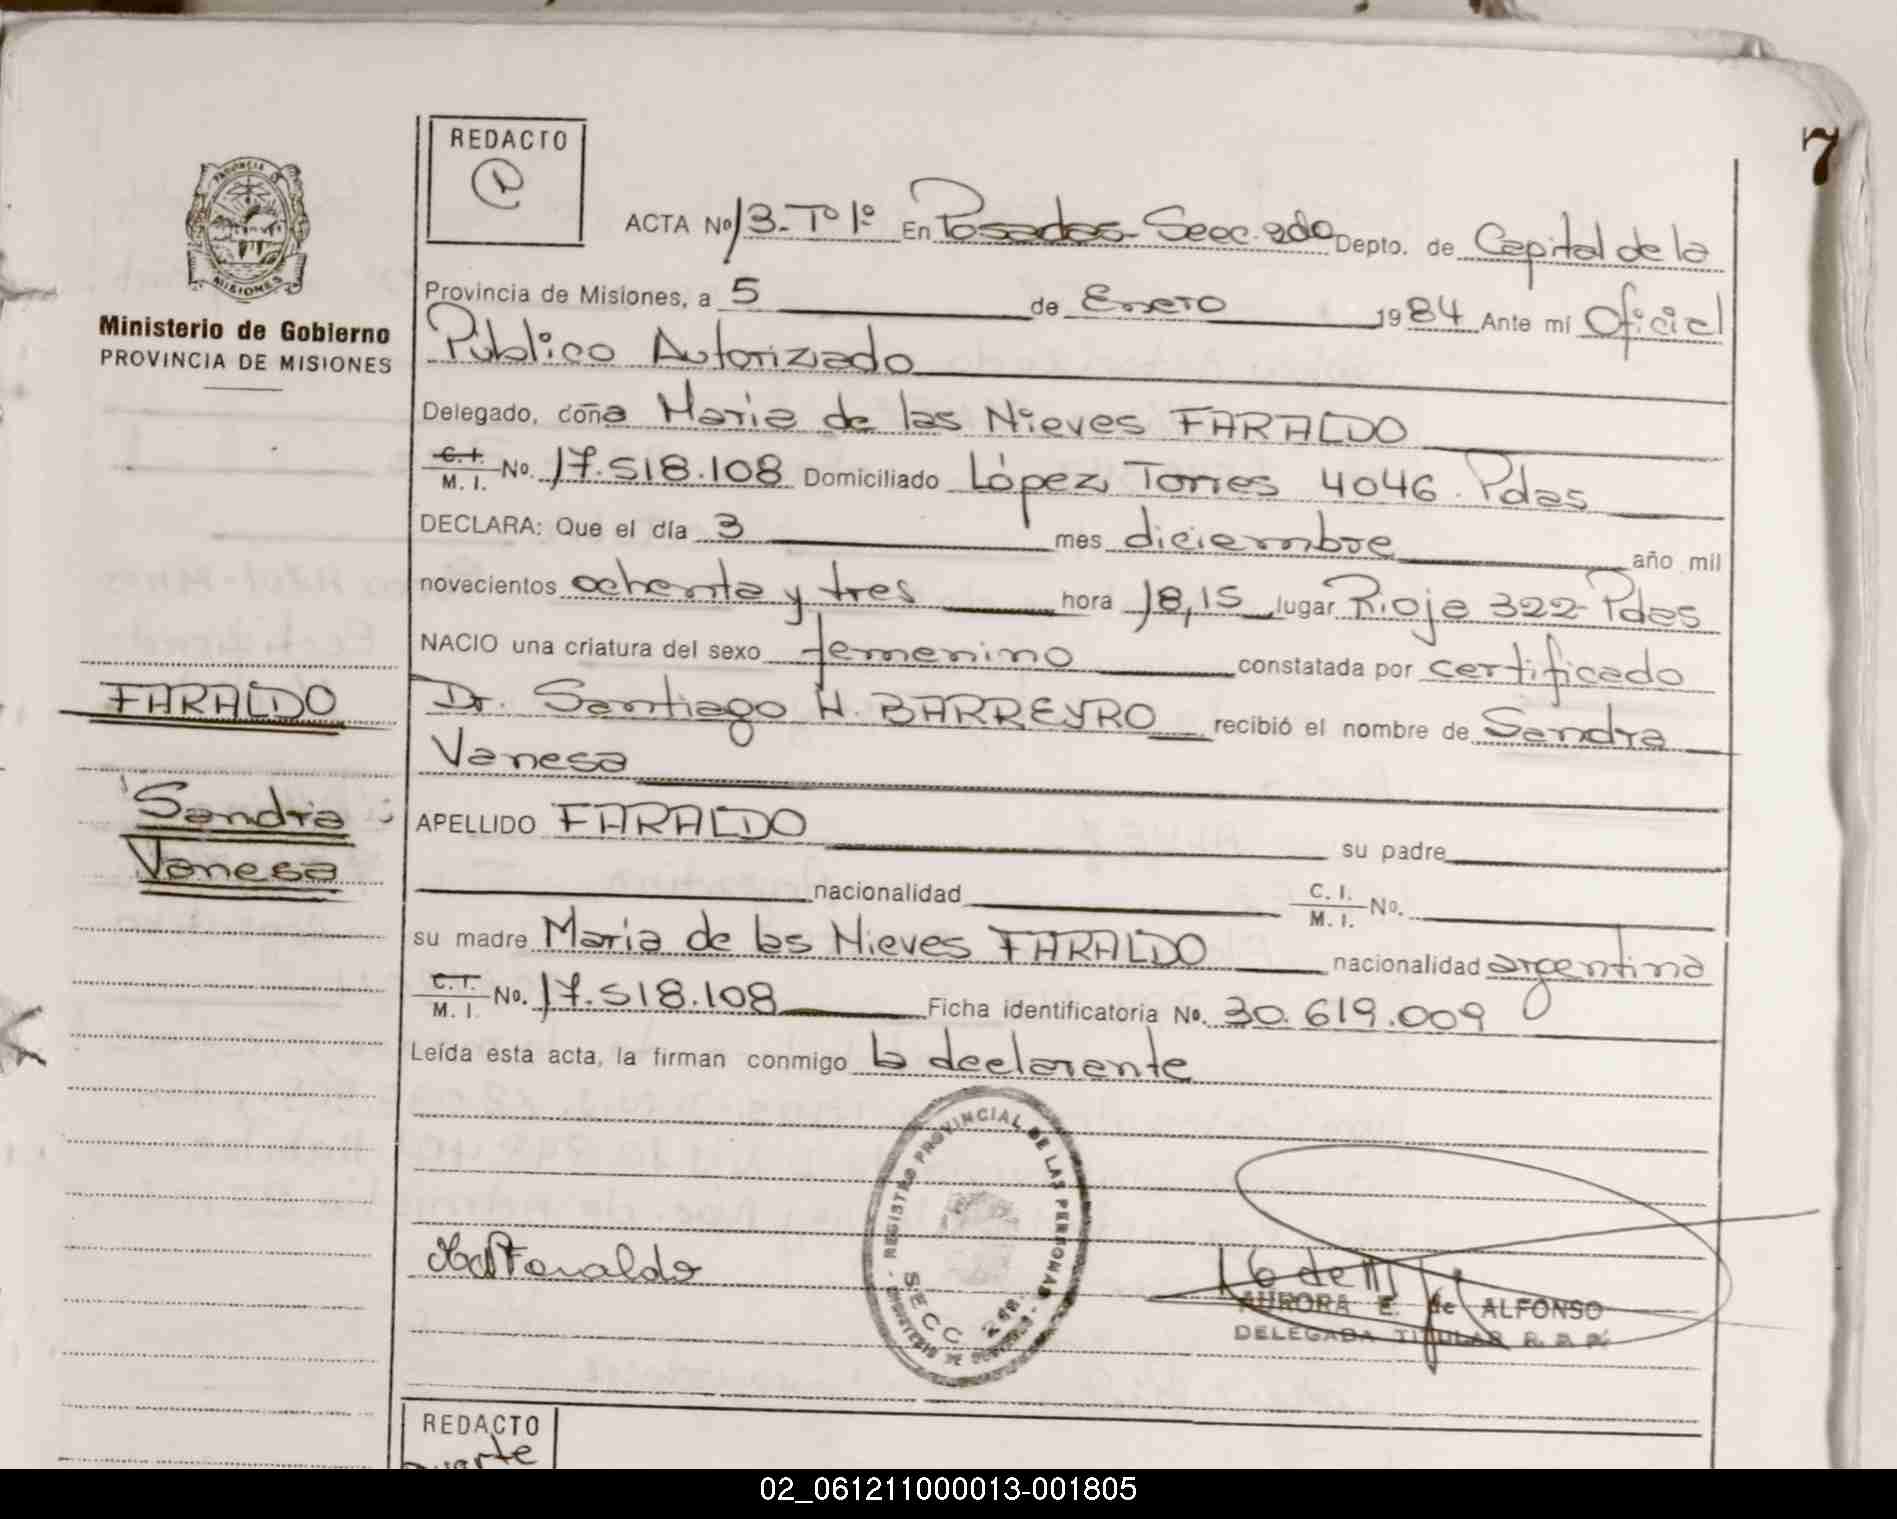 7
REDACTO
PROVINCIA
MISIONES
Ministerio de Gobierno
PROVINCIA DE MISIONES
ACTA Nº 13-Tº 1º En Posadas-Secc. 2da Depto. de Capital de la
Provincia de Misiones, a 5 de Enero 1984 Ante mí Oficial
Público Autorizado
Delegado, doña Maria de las Nieves FARALDO
C. I. M. I. No. 17.518.108 Domiciliado López Torres 4046. Pdas
DECLARA: Que el día 3 mes diciembre año mil
novecientos ochenta y tres hora 18,15 lugar Rioja 322 Pdas
NACIO una criatura del sexo femenino constatada por certificado
Dr. Santiago H. BARREYRO recibió el nombre de Sandra
Vanesa
FARALDO
Sandra
Vanesa
APELLIDO FARALDO su padre
nacionalidad C. I. M. I. Nº.
su madre Maria de las Nieves FARALDO nacionalidad argentina
C. I. M. I. No. 17.518.108 Ficha identificatoria Nº. 30.619.009
Leída esta acta, la firman conmigo la declarante
REGISTRO PROVINCIAL DE LAS PERSONAS
SECC. 2da.
MINISTERIO DE GOBIERNO
Faraldo
AURORA E. de ALFONSO
DELEGADA TITULAR R. P. P.
REDACTO
02_061211000013-001805